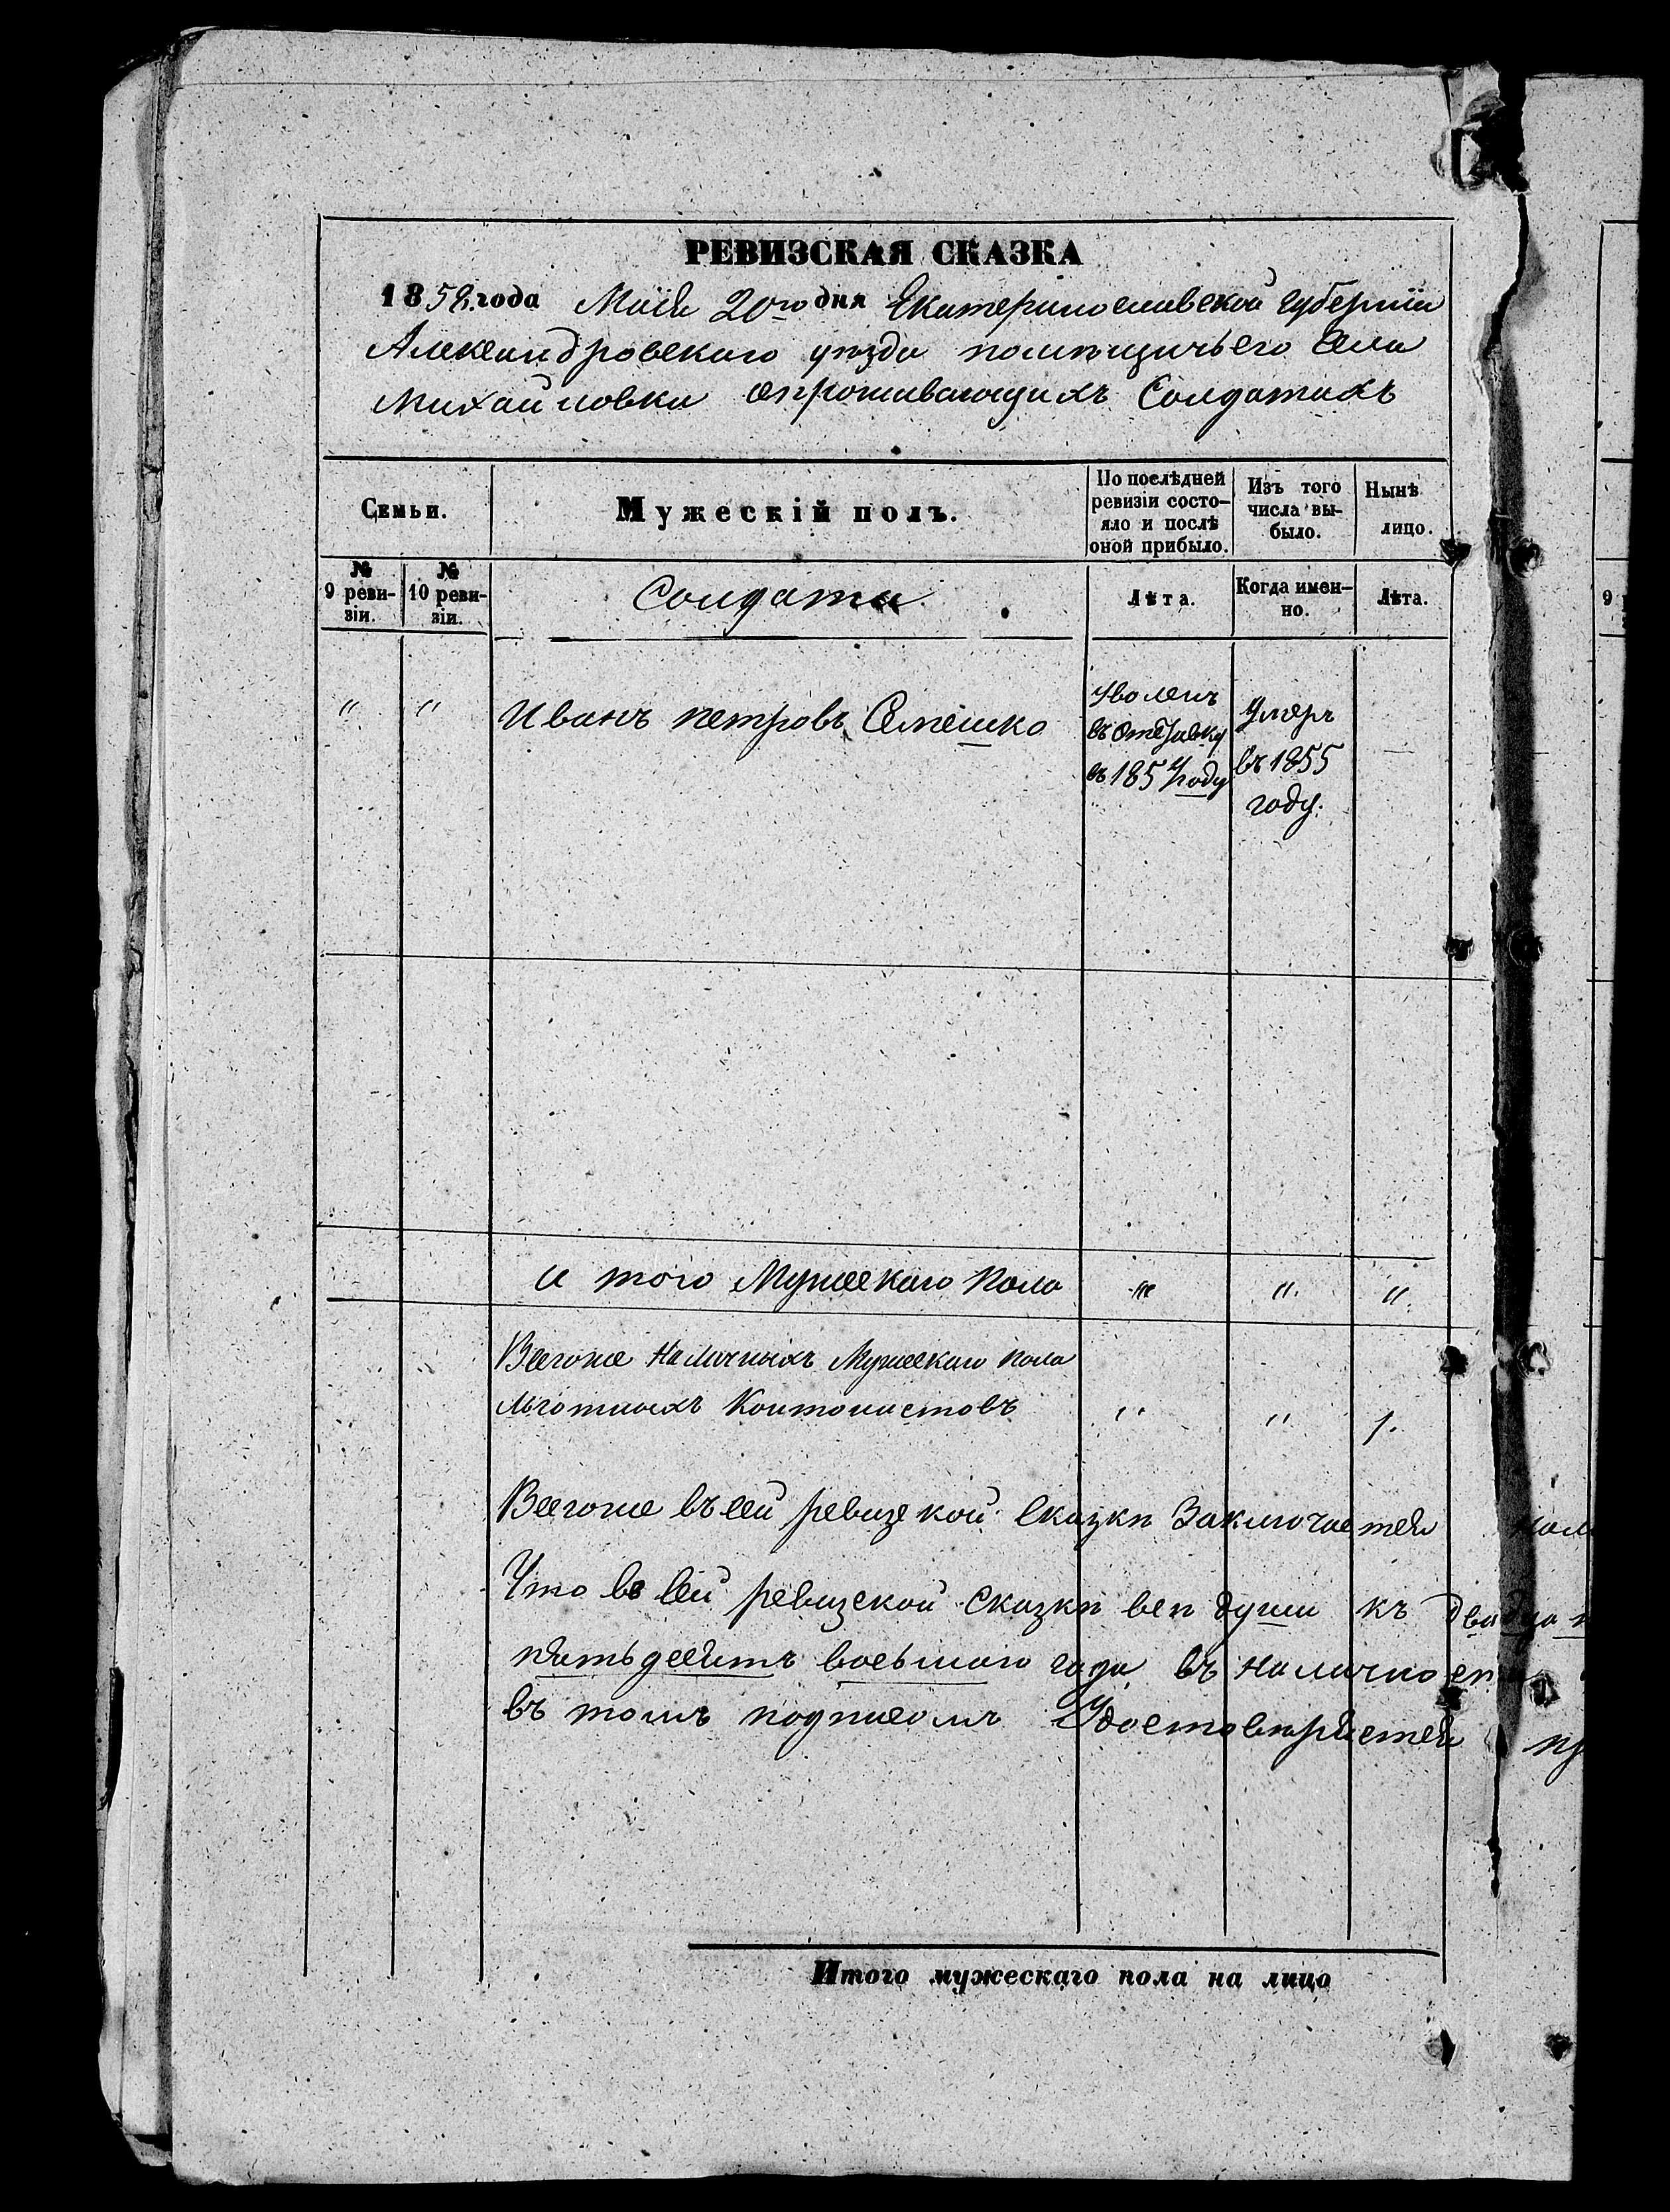 РЕВИЗСКАЯ СКАЗКА
1858 года Маія 20го дня Екатеринославской губерніи
Александровскаго уѣзда помѣщичьего села
Михайловки о проживающихъ Солдатахъ
Семьи.
Мужескій полъ.
По послѣдней
ревизіи состо-
яло и послѣ
оной прибыло.
Изъ того
числа вы-
было.
Нынѣ
лицо.
№
9 реви-
зіи.
№
10 реви-
зіи.
Солдаты.
Лѣта.
Когда имен-
но.
Лѣта.
9
" " Иванъ петровъ Семешко
Уволенъ
въ отставку
въ 185 году
Умеръ
въ 1855
году.
и того Мужескаго пола " " "
Всегоже наличныхъ Мужескаго пола
Льготныхъ Кантонистовъ " " 1.
Всегоже въ сей ревизской сказкѣ Заключается
Что въ сей ревизской Сказкѣ всѣ души къ двадца
пятьдесятъ восьмаго года въ налично
въ томъ подписомъ Удостовѣряется
Итого мужескаго пола на лицо